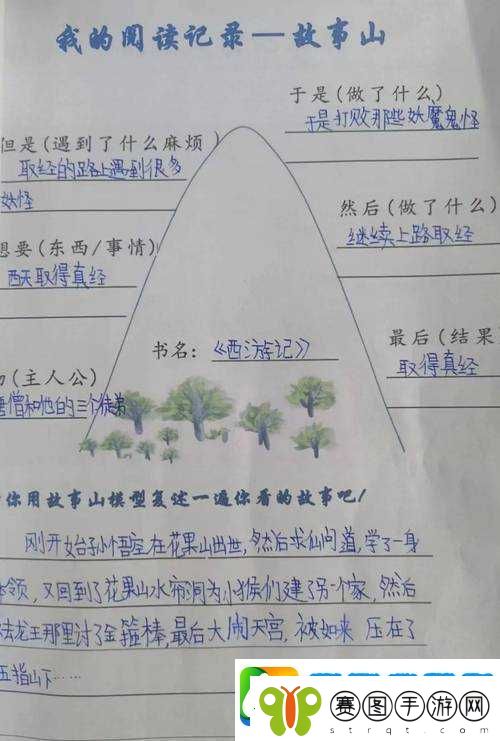 我的阅读记录—故事山
于是(做了什么)
于是打败那些妖魔鬼怪
但是(遇到了什么麻烦)
取经的路上遇到很多
妖怪
然后(做了什么)
继续上路取经
想要(东西/事情)
西天取得真经
最后(结果
取得真经
书名:《西游记》
(主人公)
唐僧和他的三个徒弟
你用故事山模型复述一遍你看的故事吧!
刚开始孙悟空在花果山出世,然后求仙问道,学了一身
本领,又回到了花果山水帘洞为小猴们建了另一个家,然后
去龙王那里讨了金箍棒,最后大闹天宫,被如来 压在了
五指山下……
赛图手游网
strqt.com